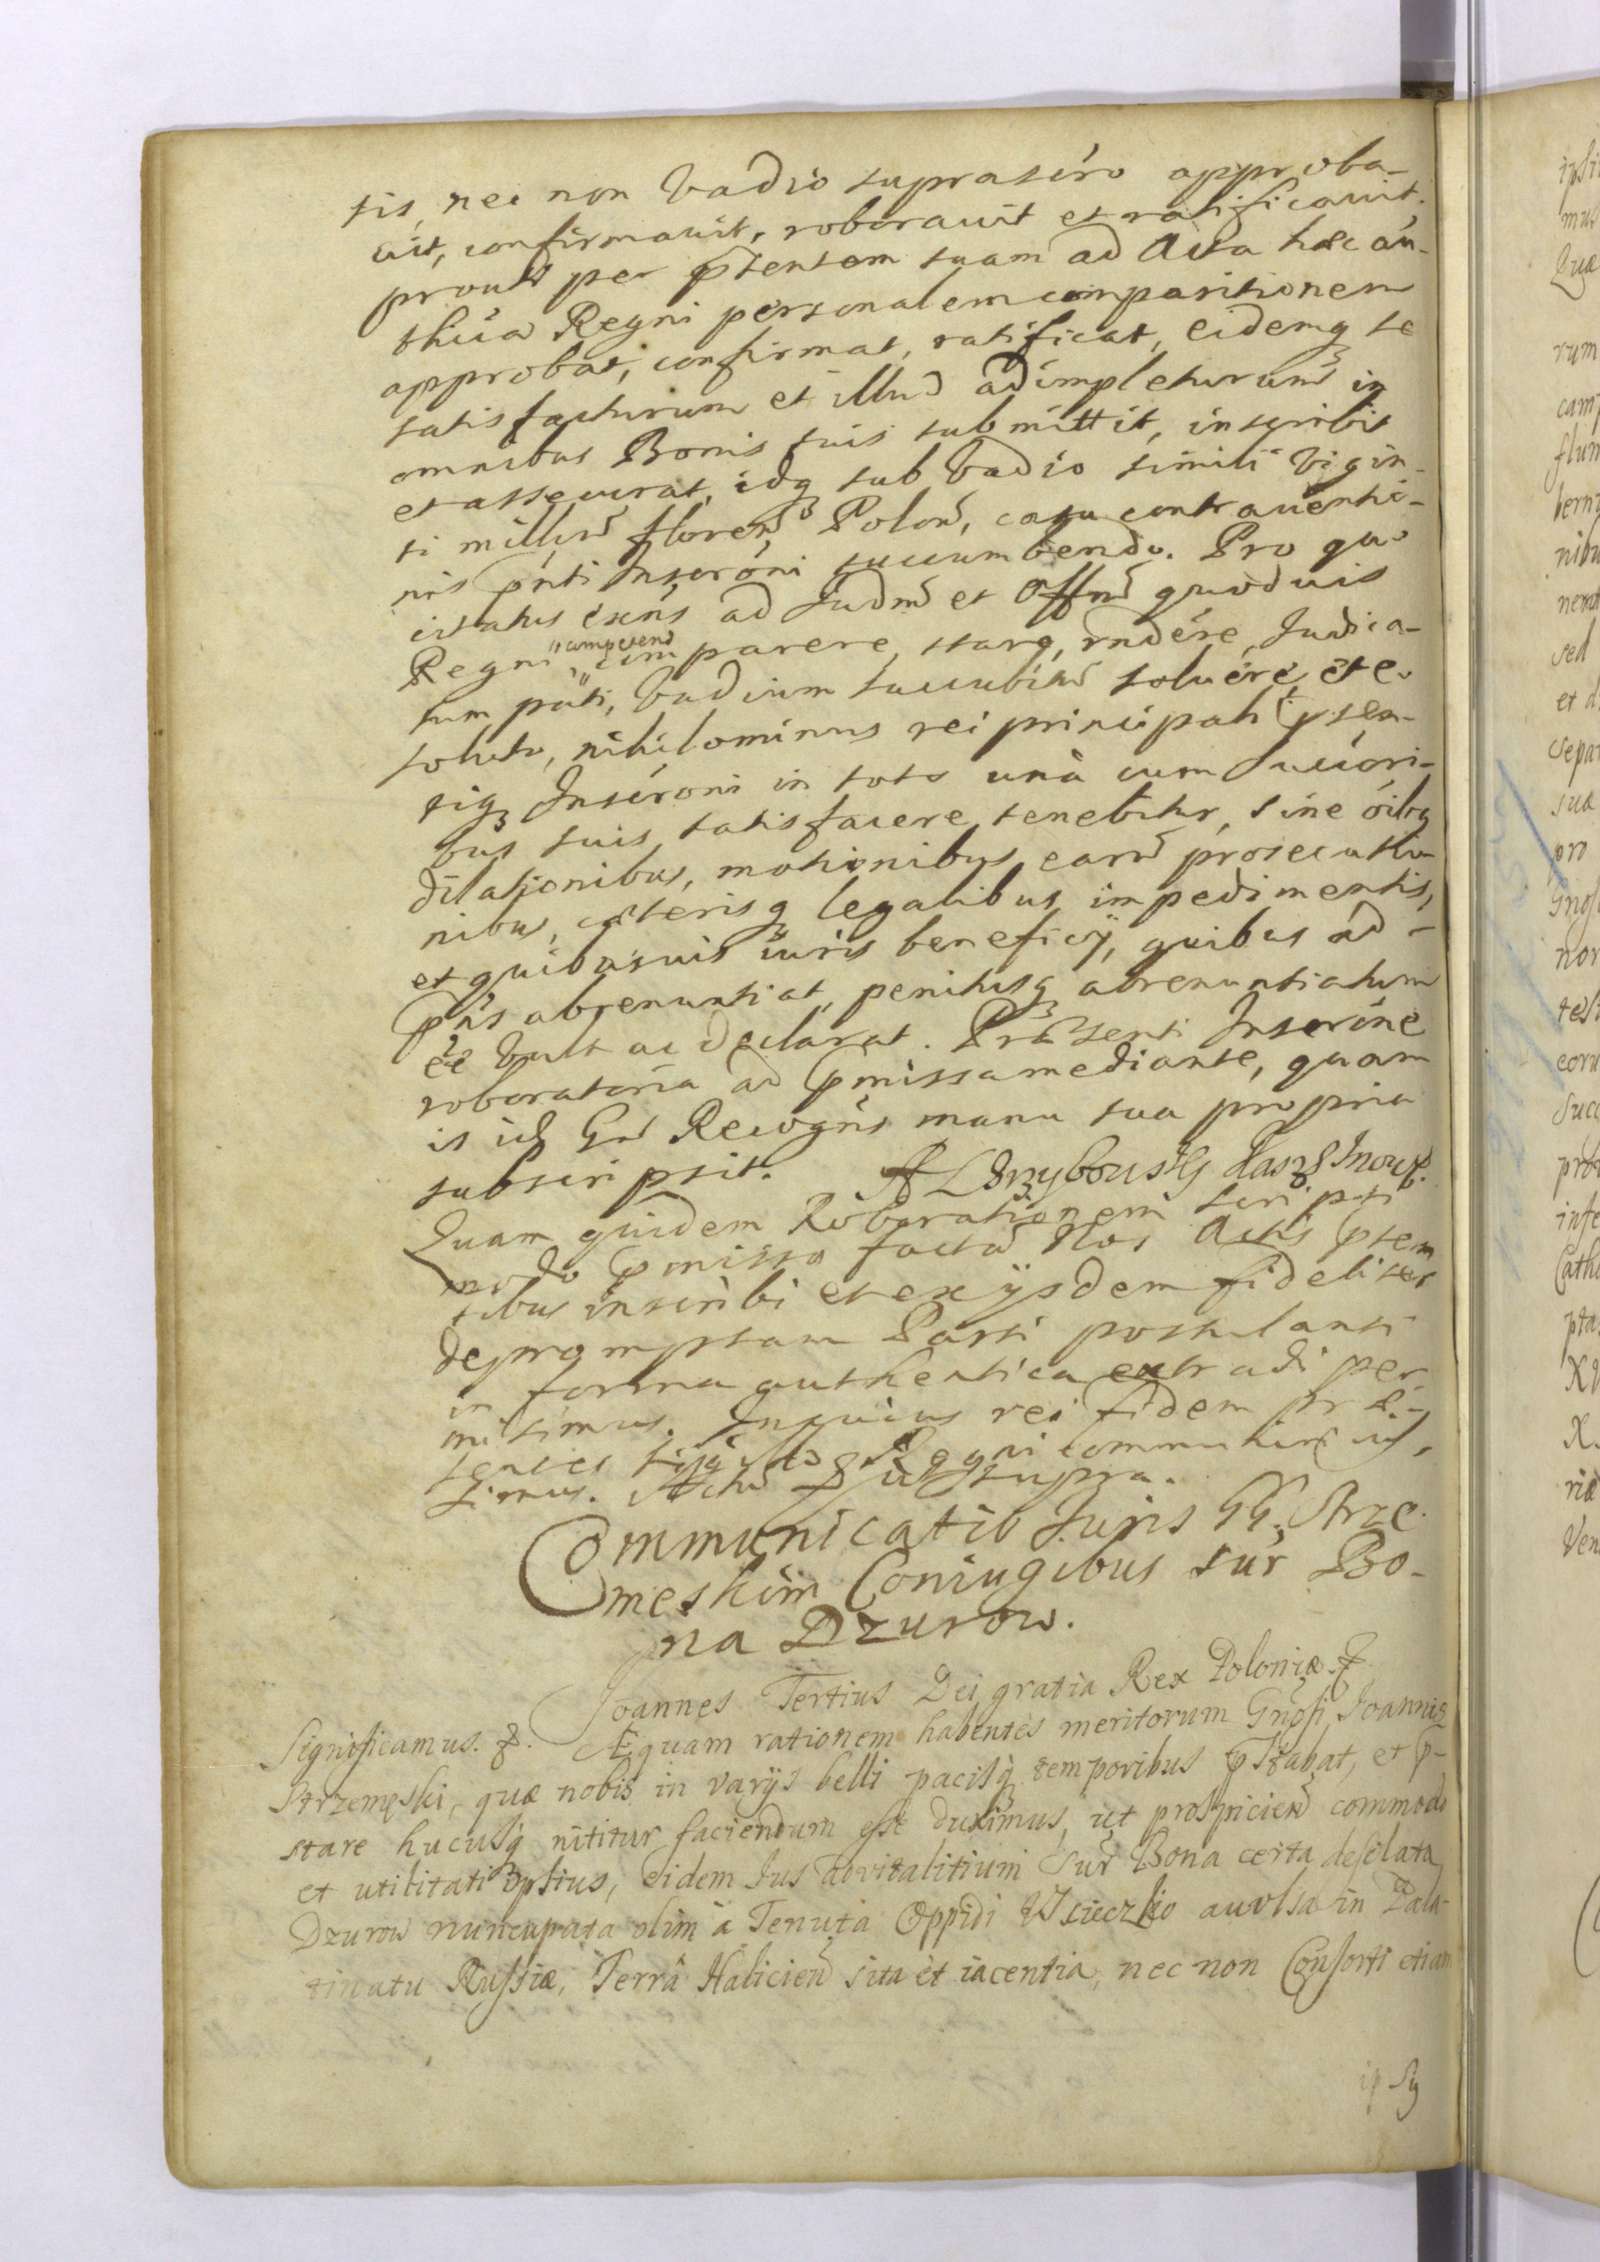 tis, nec non Vadio suprascro approba-
vit, confirmavit, roboravit et ratificavit.
prout per pntentem suam ad Acta haec au-
thica Regni personalem comparitionem
approbat, confirmat, ratificat, eidemq se
satisfacturum et illud adimpleturum in
omnibus Bonis suis submittit, inscribit
et assecurat, idq sub Vadio simili Vigin-
ti milliu floren Polon, casu contraventio-
nis pnti Inscroni succumbendo. Pro quo
citatus exns ad Judm et Offm quodvis
Regni "competend" cum parere, stare, rndere, Judica-
tum pati, Vadium succubitu soluere, et eo
soluto, nihilominus rei principali psen-
tiq Inscroni in toto una cum Succori-
bus suis satisfacere tenebitur, sine oibq
dilationibus, motionibus, earu prosecutio-
nibus, caeterisq legalibus impedimentis,
et quibusvis iuris beneficijs, quibus ad
pns abrenuntiat, penitusq abrenuntiatum
ee Vult ac declarat. Praesenti Inscrone
roboratoria ad pmissa mediante, quam
is id Gns Recogns manu sua propria
subscripsit.
Quam quidem Roborationem scripti
modo pmisso facta Nos Actis psen
tibus inscribi et ex ijsdem fideliter
depromptam Parti postulanti
in forma authentica extradi per
misimus. In cuius rei fidem prae-
sentes Sigillo Regni communiri ius,
simus. Actu ut supra.
Communicatio Juris GG. Strze
meskim Coniugibus sur Bo-
na Dzurow.
Joannes Tertius Dei gratia Rex Poloniae &.
Significamus. &. AEquam rationem habentes meritorum Gnosi Joannis
Strzemęski, quae nobis in varijs belli pacisq temporibus pstabat, et p-
stare hucusq nititur faciendum esse duximus, ut prospiciend commodo
et utilitati ipsius, eidem Jus advitalitium sur Bona certa desolata
Dzurow nuncupata olim a Tenuta Oppidi avulsa in Pala-
tinatu Russiae, Terrâ Haliciens sita et iacentia, nec non Consorti etiam
ipsiq